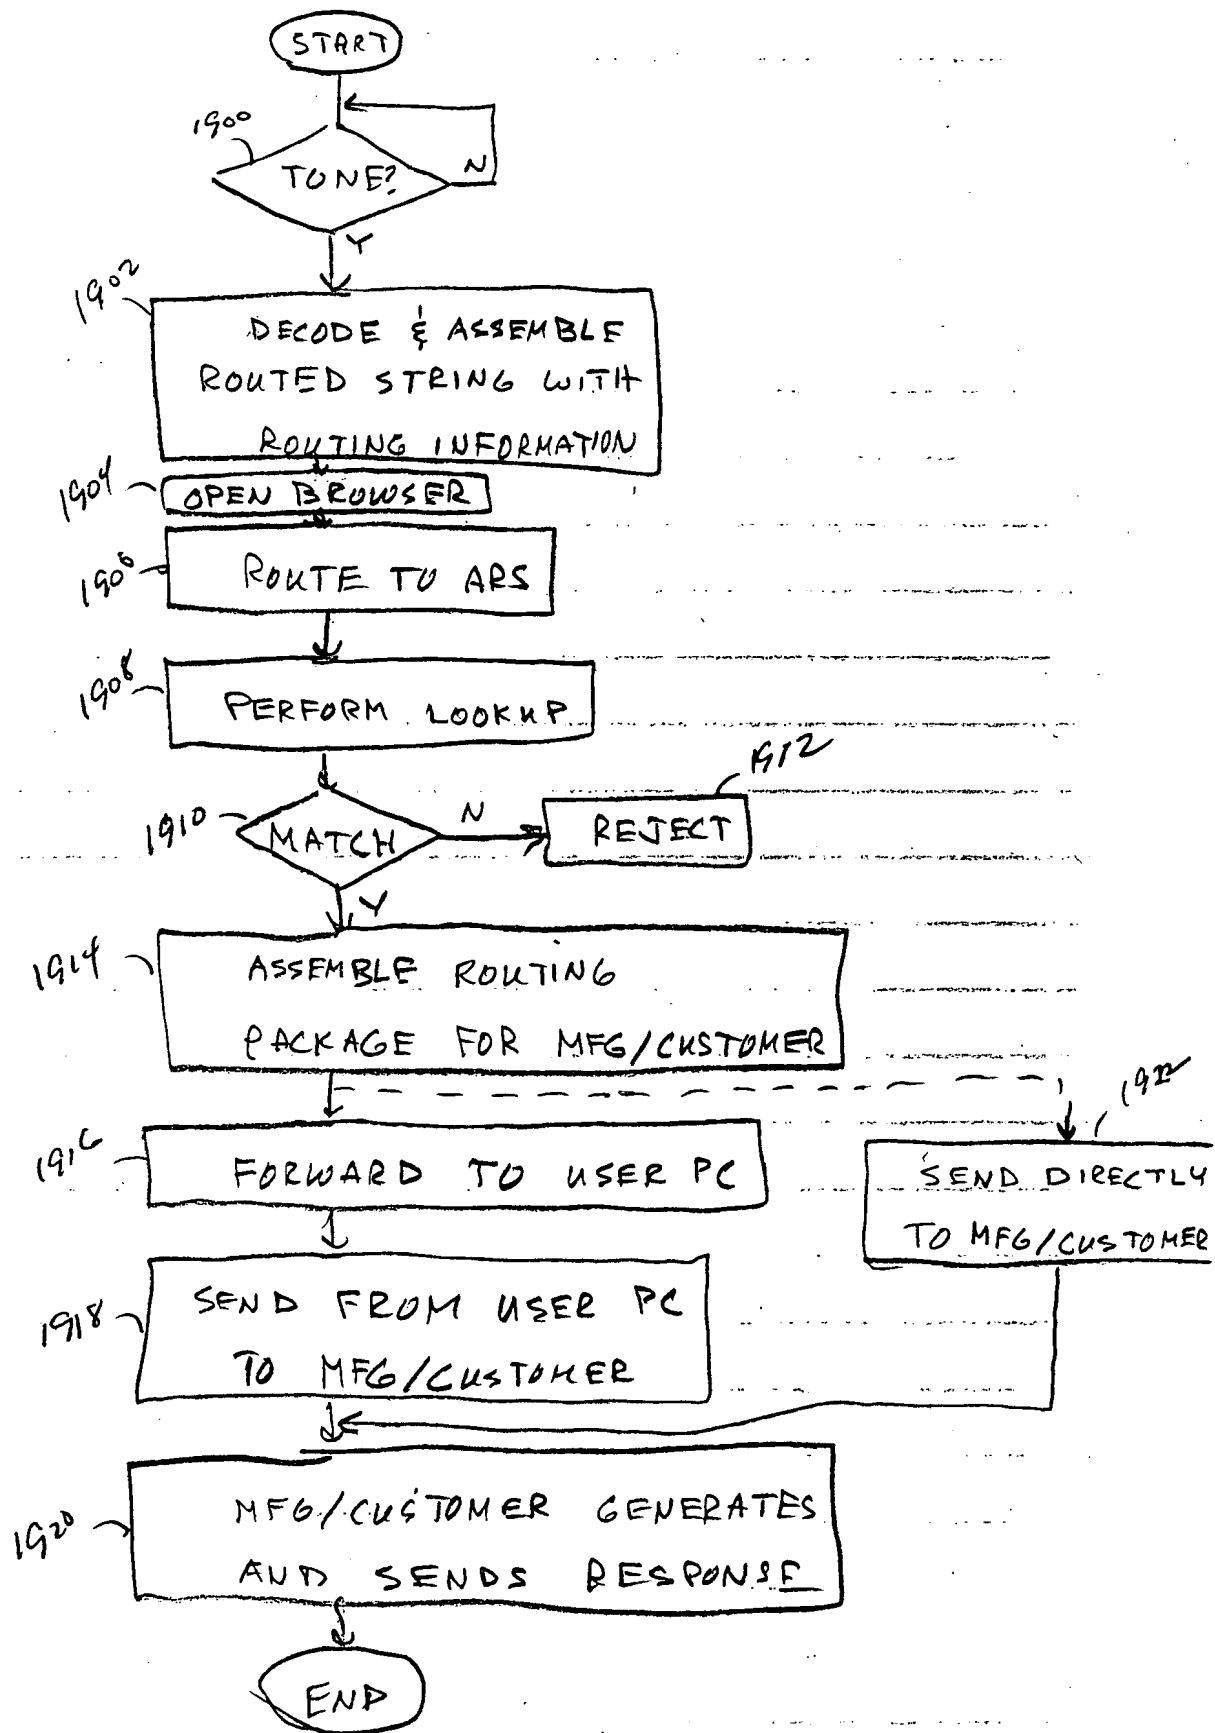 START
1900
TONE?
N
Y
1902
DECODE & ASSEMBLE
ROUTED STRING WITH
ROUTING INFORMATION
1904
OPEN BROWSER
1906
ROUTE TO ARS
1908
PERFORM LOOKUP
1910
MATCH
N
1912
REJECT
Y
1914
ASSEMBLE ROUTING
PACKAGE FOR MFG/CUSTOMER
1916
FORWARD TO USER PC
1922
SEND DIRECTLY
TO MFG/CUSTOMER
1918
SEND FROM USER PC
TO MFG/CUSTOMER
1920
MFG/CUSTOMER GENERATES
AND SENDS RESPONSE
END